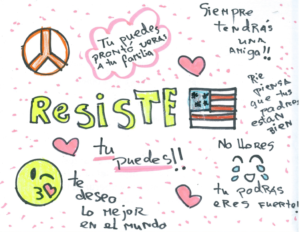 Siempre
tendrás
una
amiga!!
Tu puedes
pronto veras
a tu familia
Resiste
piensa
que tus
padres
están
bien
tu
puedes!!
No llores
te
deseo
lo mejor
en el mundo
tu podrás
eres fuerte!